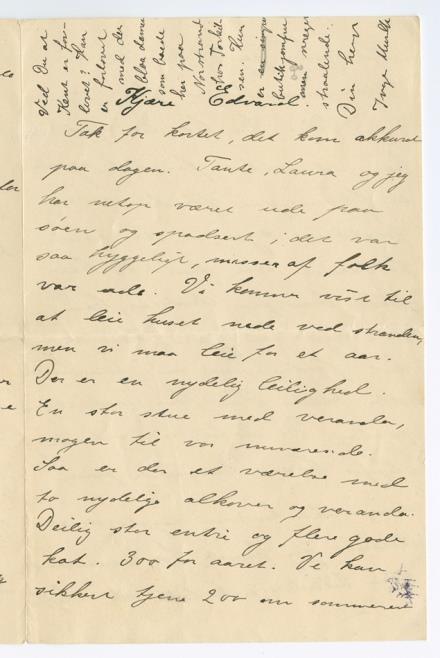 Kjære Edvard.
Tak for kortet, det kom akkurat
paa dagen. Tante, Laura og jeg
har netop været ude paa
søen og spadsert i det var
saa hyggeligt, masser af folk
var ude. Vi kommer vist til
at leie huset nede ved stranden,
men vi maa leie for et aar.
Der er en nydelig leilighed.
En stor stue med veranda,
magen til vor nuværende.
Saa er der et værelse med
to nydelige alkover og veranda.
Deilig stor entré og flere gode
kot. 300 for aaret. Vi kan
sikkert tjene 200 om sommeren
Ved Du at
Knut er for-
lovet? Han
er forlovet
med den
blaa dame
som bode
her paa
Norstrand
hos Torkil-
sen. Hun
er en
butikjomfru
men
straalende.
Din
Inga